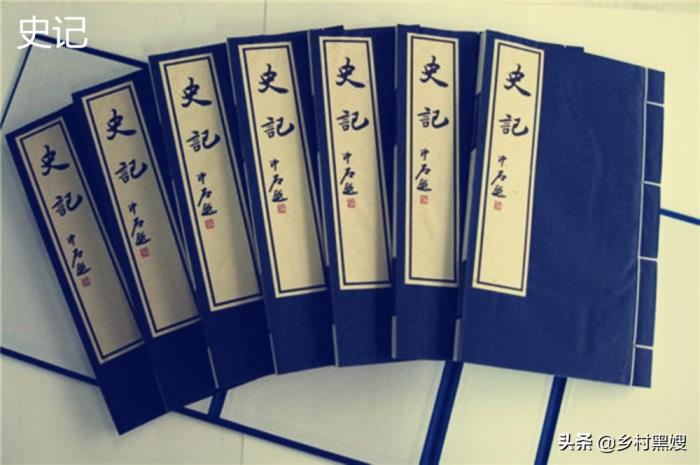 史记
史記
中石題
史記
中石題
史記
中石題
史記
中石題
史記
中石題
史記
中石題
史記
中石題
头条 @乡村黑嫂